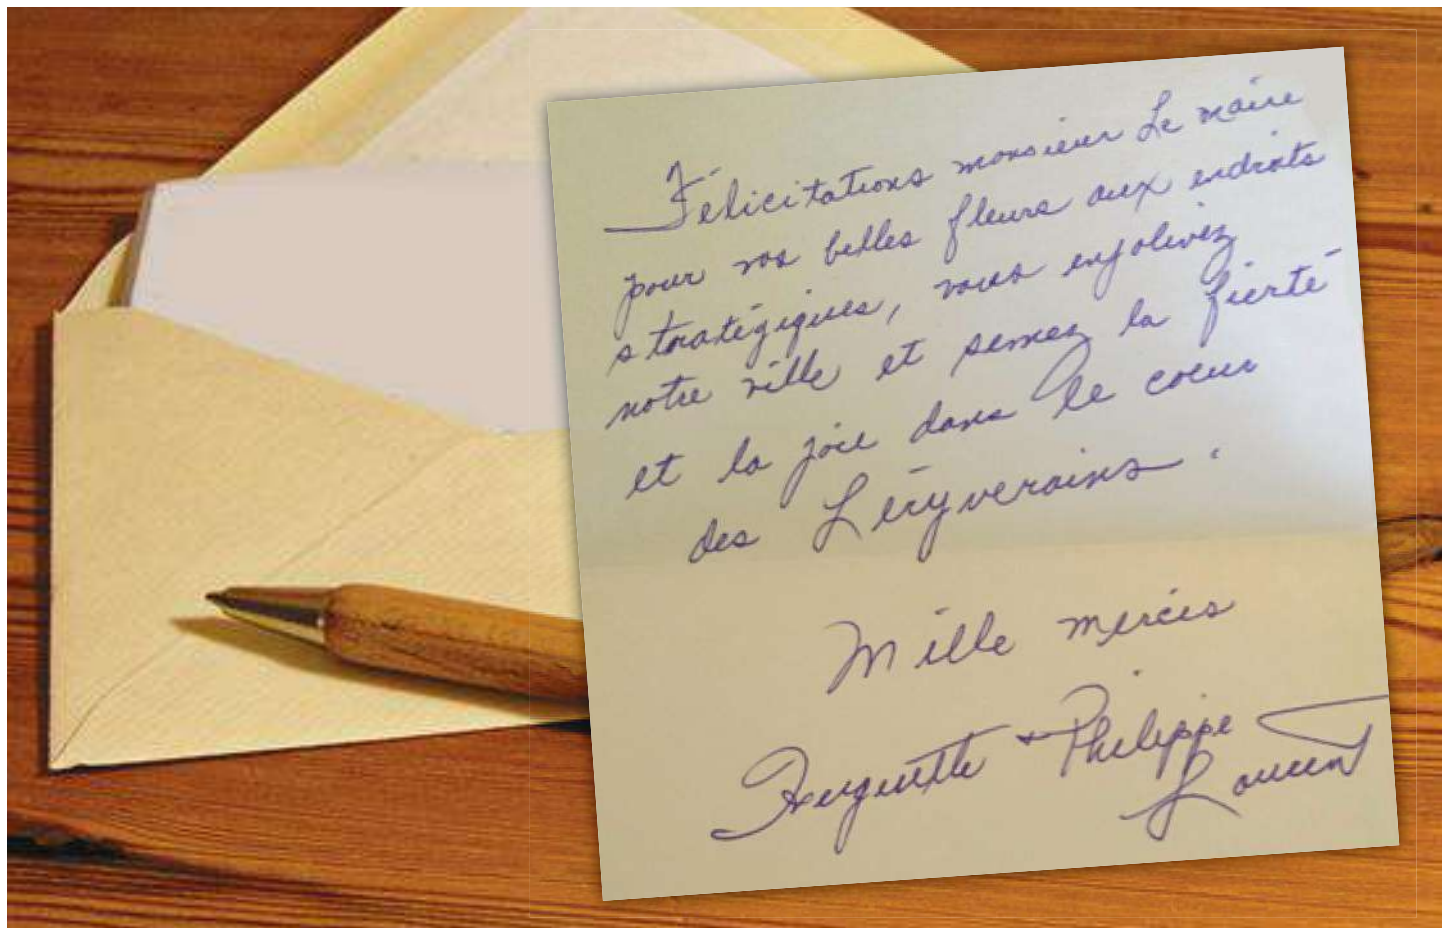 Félicitations monsieur Le maire
pour vos belles fleurs aux endroits
stratégiques, vous enjolivez
notre ville et semez la fierté
et la joie dans le coeur
des Léryverains.
Mille mercis
Huguette + Philippe